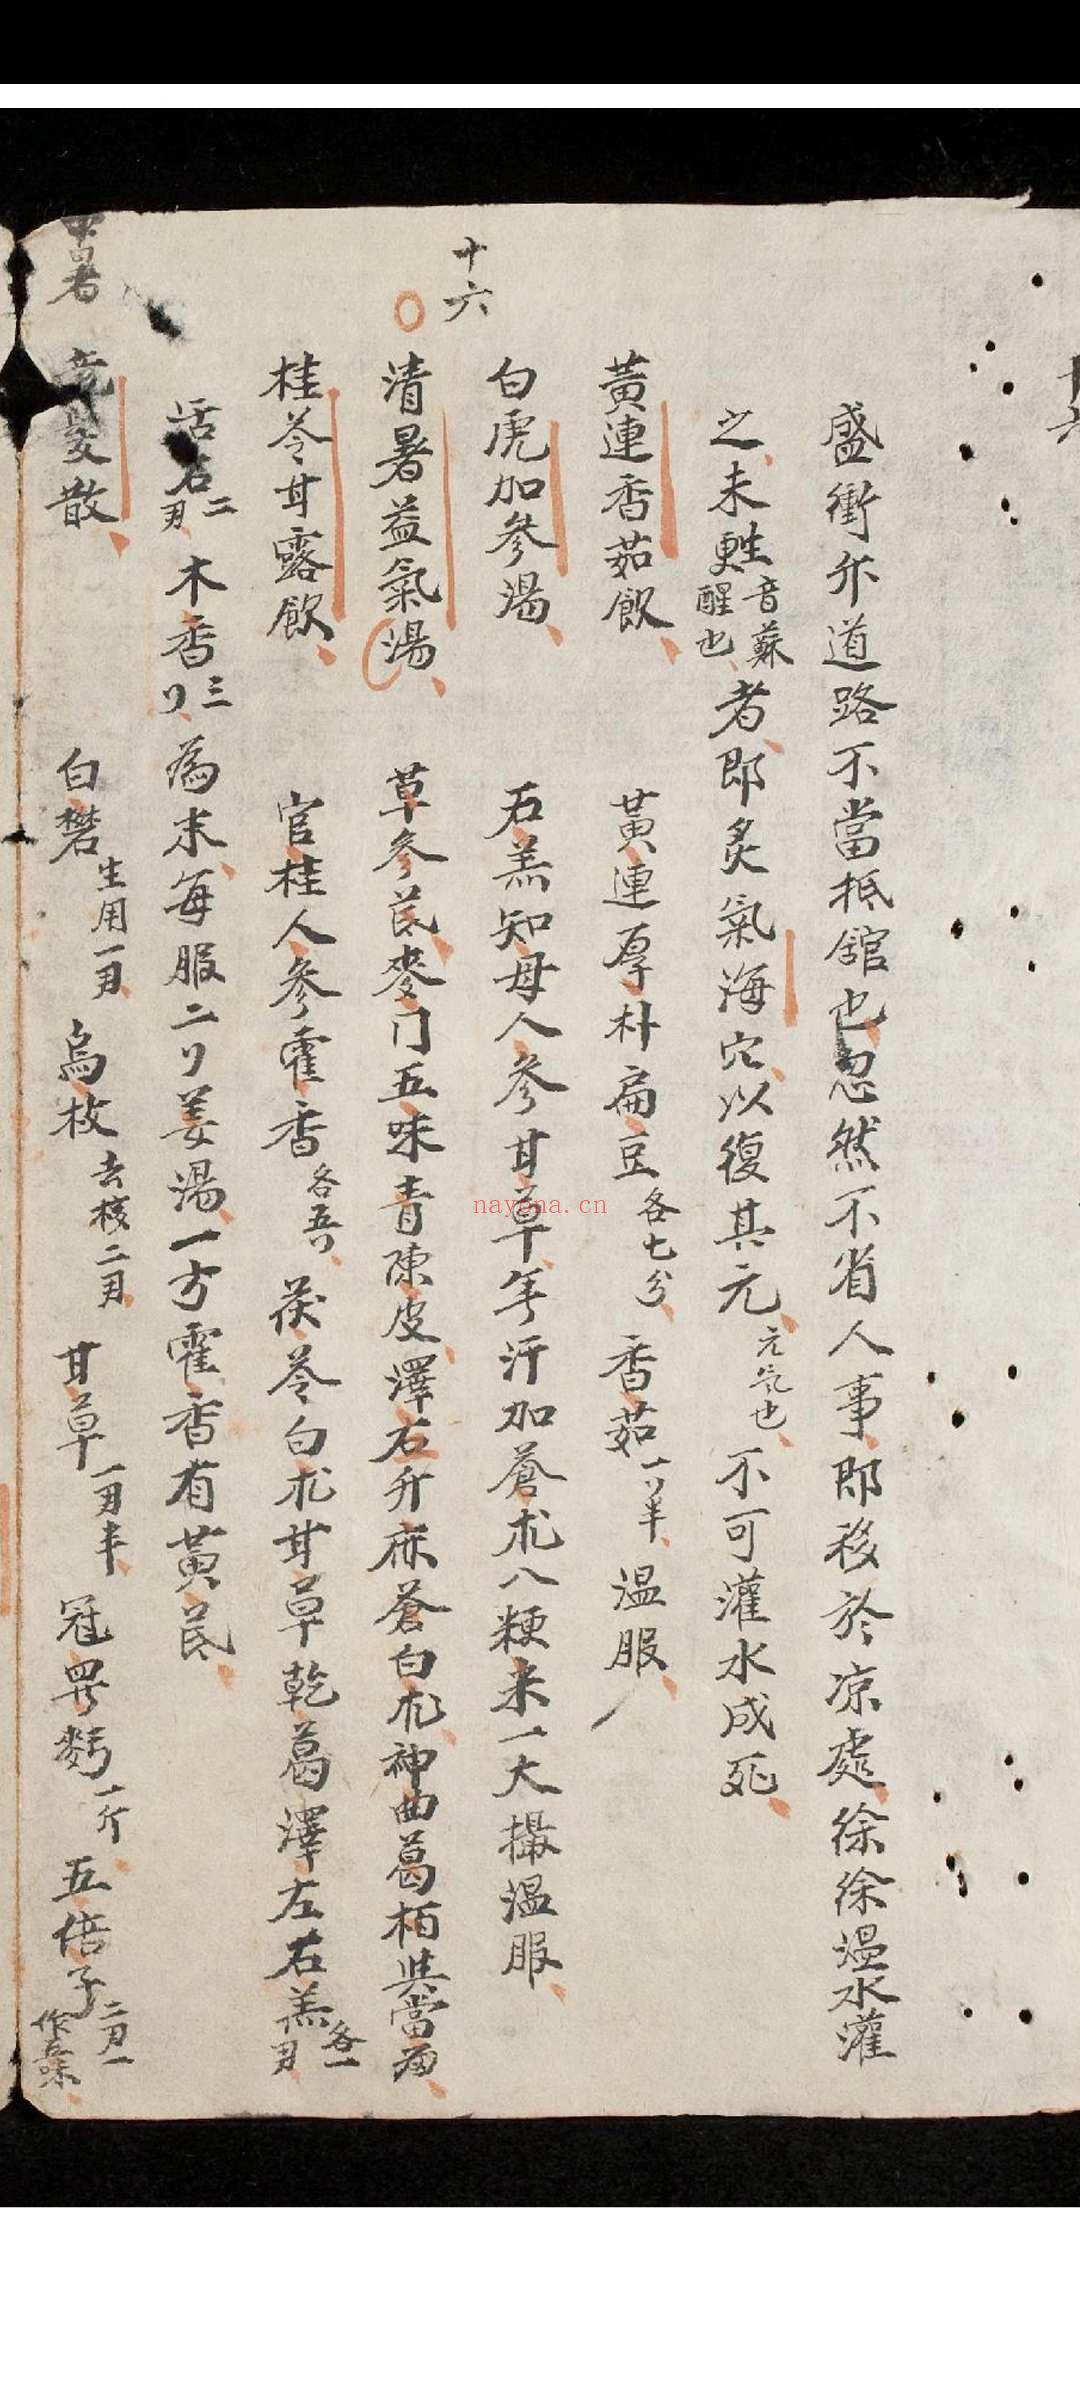 十六
盛衝斥道路不當抵舘也忽然不省人事即移於凉處徐徐温水灌
之未甦音蘇醒也者即灸氣海穴以復其元元氣也不可灌水成死
黃連香茹飲 黃連厚朴扁豆各七分香茹一リ半温服
十六
白虎加參湯 石羔知母人參甘草年汗加蒼朮八粳米一大撮温服
清暑益氣湯 草參芪麥门五味青陳皮澤右升麻蒼白朮神曲葛栢具當而
桂苓甘露飲 官桂人參霍香各五リ茯苓白朮甘草乾葛澤左石羔各一刄
活石二刄木香三リ為末每服二リ姜湯一方霍香有黃芪
暑
散 白礬生用一刄烏枚去核二刄甘草一刄半冠 麪一斤五倍子二刄一作末
nayona.cn